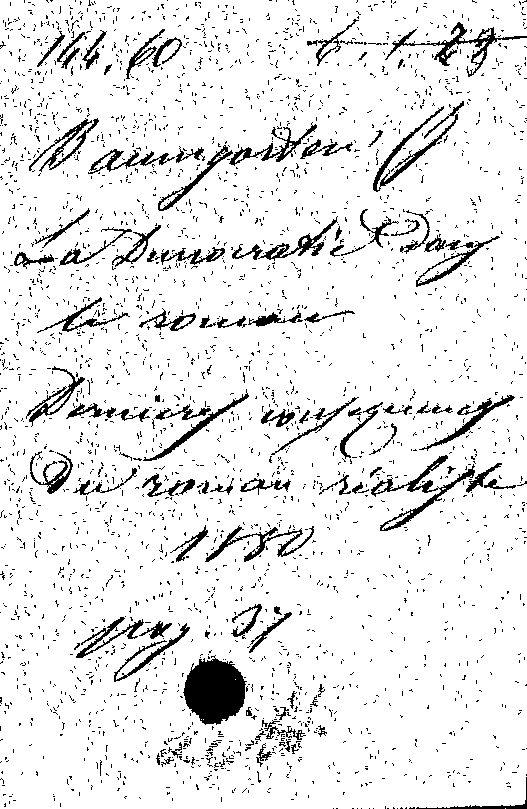 144.60 6.1.23
Baumgarten J
La Démocratie dans
le roman
Dernieres consequences
du roman réaliste
1880
pag. 37